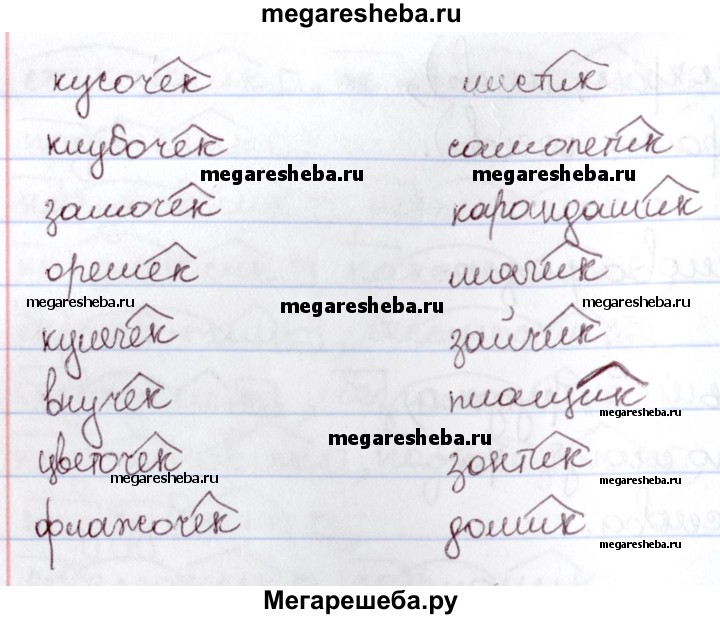 megaresheba.ru
кусочек листик
клубочек самолетик
megaresheba.ru megaresheba.ru
замочек карандашик
орешек мячик
megaresheba.ru megaresheba.ru megaresheba.ru
кулечек зайчик
внучек плащик
megaresheba.ru
megaresheba.ru
цветочек зонтик
megaresheba.ru megaresheba.ru
флажочек домик
megaresheba.ru
Мегарешеба.ру